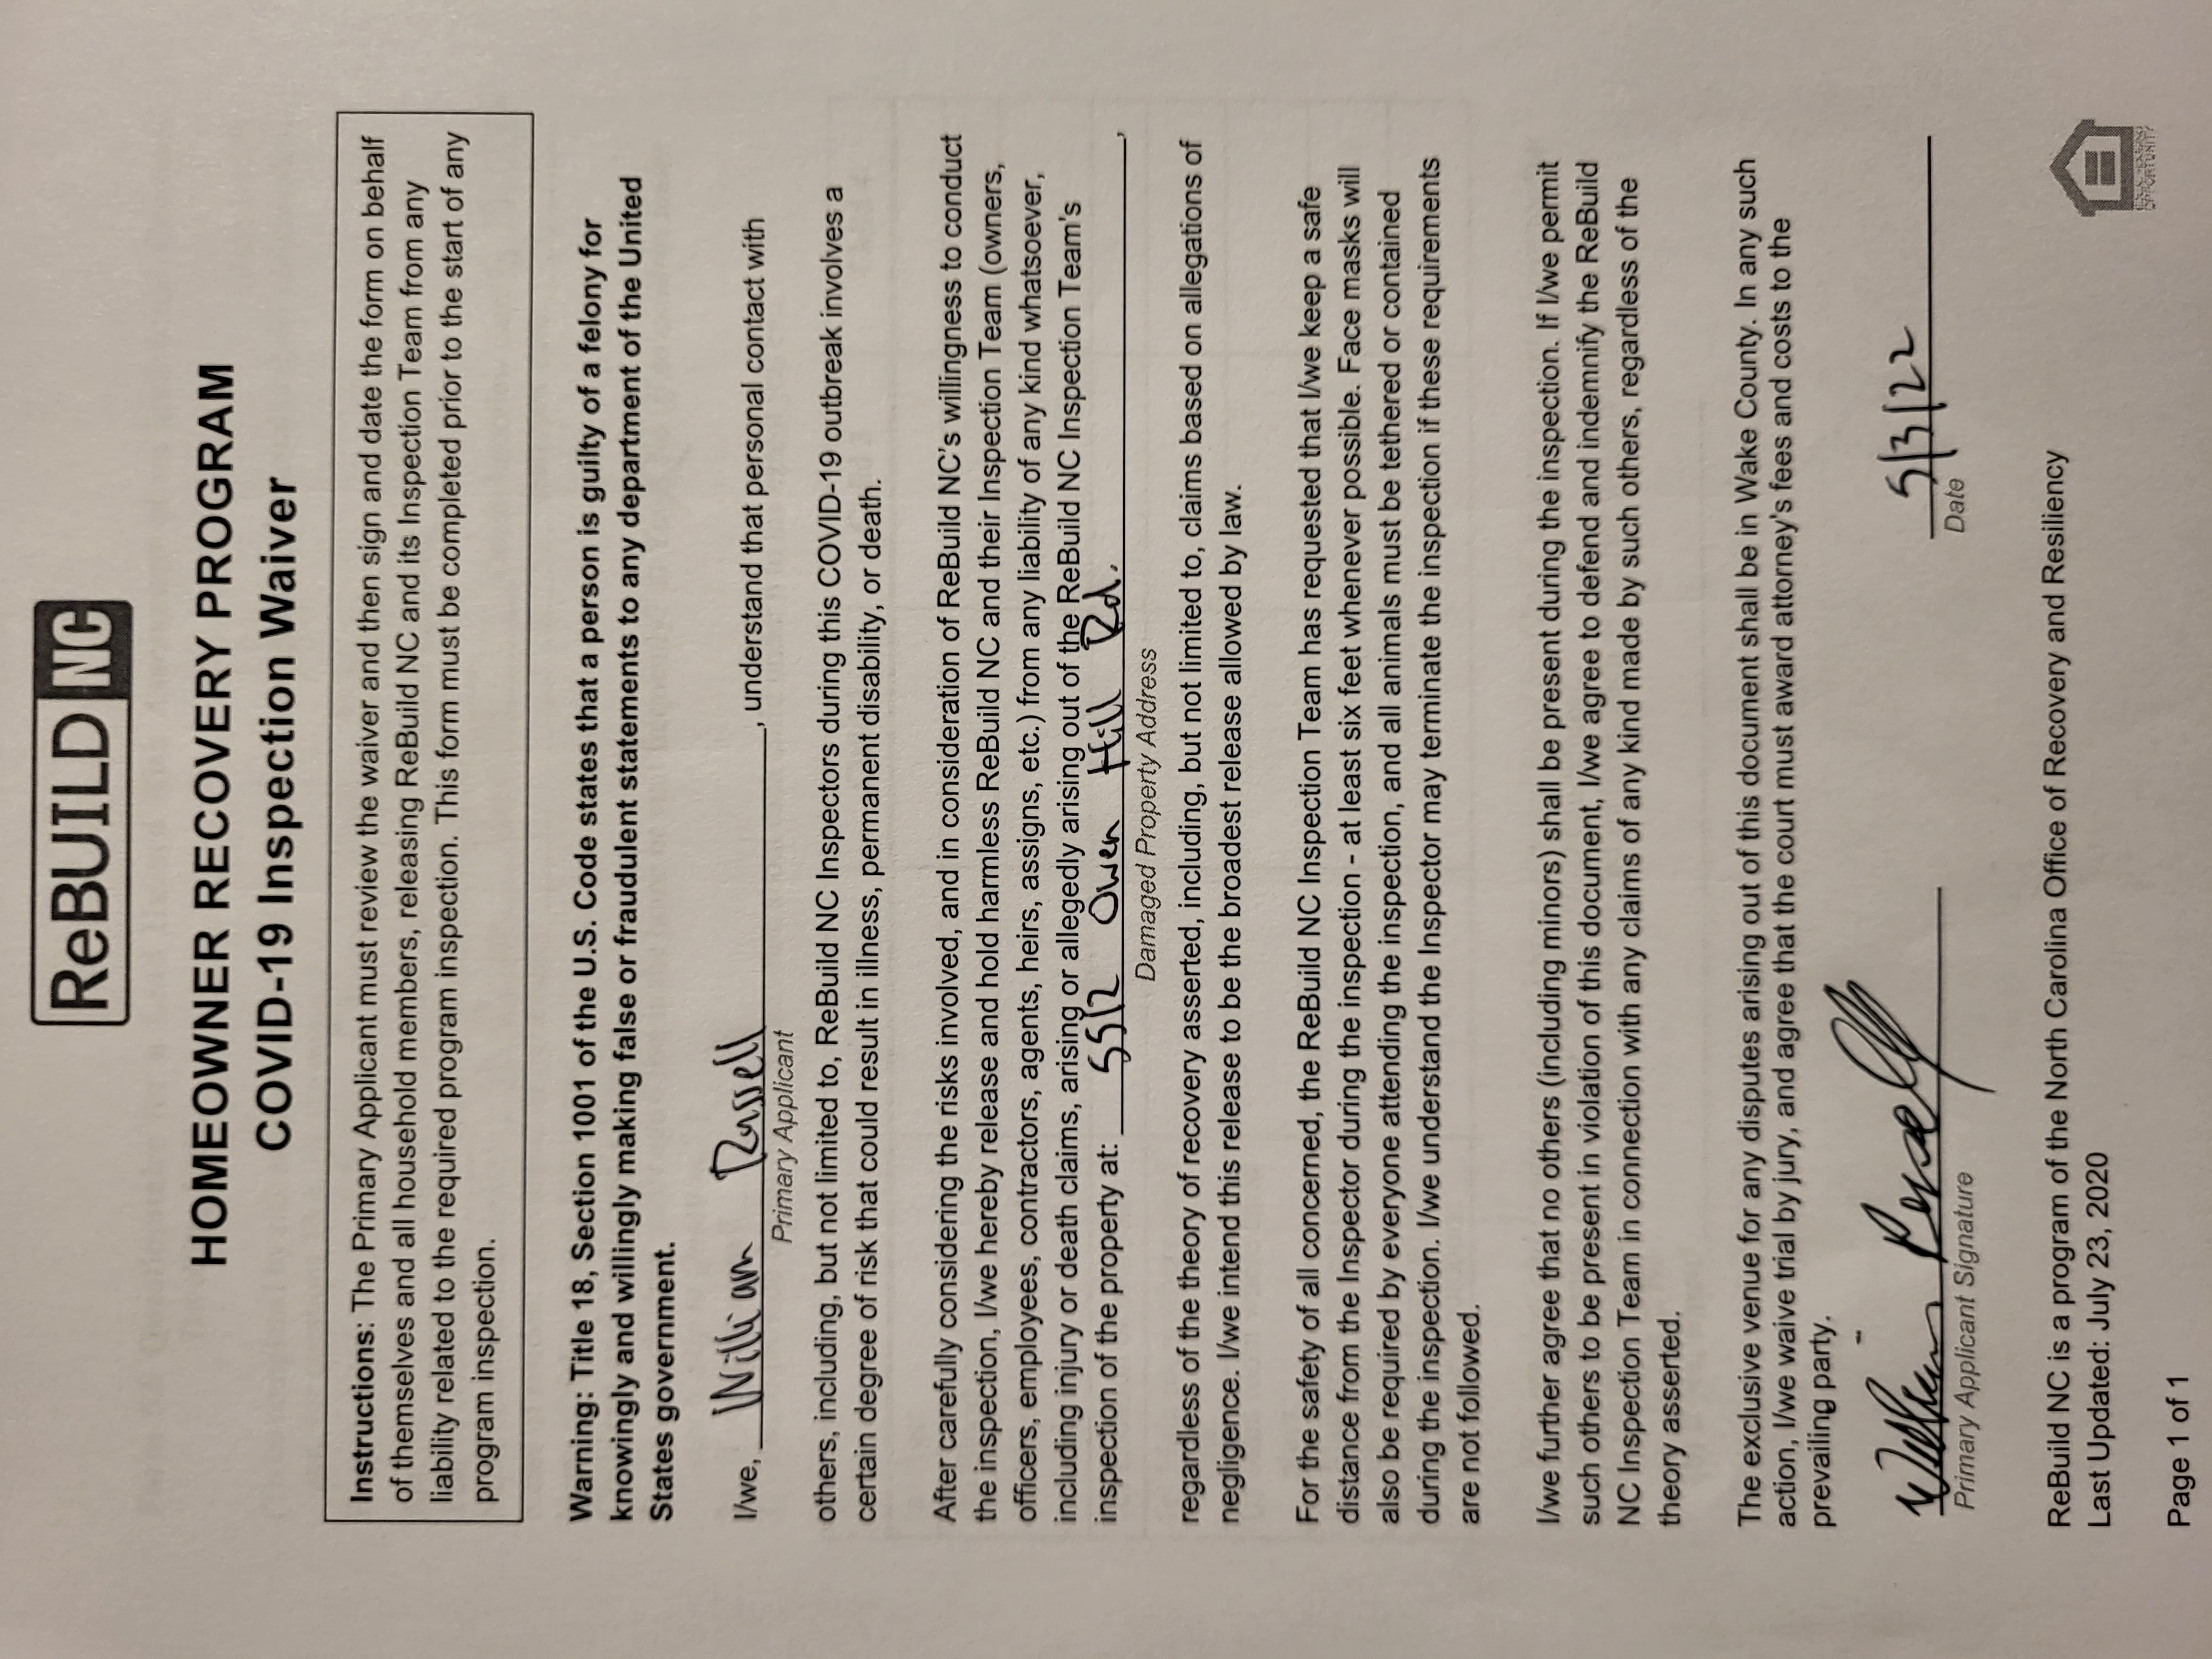 ReBUILD NC
HOMEOWNER RECOVERY PROGRAM
COVID-19 Inspection Waiver
Instructions: The Primary Applicant must review the waiver and then sign and date the form on behalf
of themselves and all household members, releasing ReBuild NC and its Inspection Team from any
liability related to the required program inspection. This form must be completed prior to the start of any
program inspection.
Warning: Title 18, Section 1001 of the U.S. Code states that a person is guilty of a felony for
knowingly and willingly making false or fraudulent statements to any department of the United
States government.
I/we, William Russell, understand that personal contact with
Primary Applicant
others, including, but not limited to, ReBuild NC Inspectors during this COVID-19 outbreak involves a
certain degree of risk that could result in illness, permanent disability, or death.
After carefully considering the risks involved, and in consideration of ReBuild NC's willingness to conduct
the inspection, I/we hereby release and hold harmless ReBuild NC and their Inspection Team (owners,
officers, employees, contractors, agents, heirs, assigns, etc.) from any liability of any kind whatsoever,
including injury or death claims, arising or allegedly arising out of the ReBuild NC Inspection Team's
inspection of the property at: 5512 Owen Hill Rd. ,
Damaged Property Address
regardless of the theory of recovery asserted, including, but not limited to, claims based on allegations of
negligence. I/we intend this release to be the broadest release allowed by law.
For the safety of all concerned, the ReBuild NC Inspection Team has requested that I/we keep a safe
distance from the Inspector during the inspection - at least six feet whenever possible. Face masks will
also be required by everyone attending the inspection, and all animals must be tethered or contained
during the inspection. I/we understand the Inspector may terminate the inspection if these requirements
are not followed.
I/we further agree that no others (including minors) shall be present during the inspection. If I/we permit
such others to be present in violation of this document, I/we agree to defend and indemnify the ReBuild
NC Inspection Team in connection with any claims of any kind made by such others, regardless of the
theory asserted.
The exclusive venue for any disputes arising out of this document shall be in Wake County. In any such
action, I/we waive trial by jury, and agree that the court must award attorney's fees and costs to the
prevailing party.
William Russell 5/3/22
Primary Applicant Signature Date
ReBuild NC is a program of the North Carolina Office of Recovery and Resiliency
Last Updated: July 23, 2020
Page 1 of 1
OPPORTUNITY